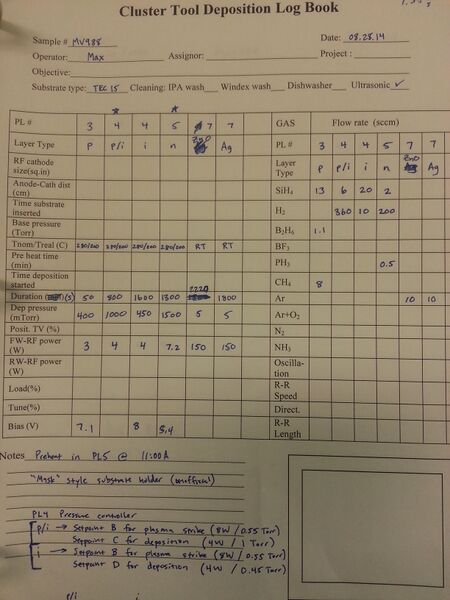 Cluster Tool Deposition Log Book
Sample # MV988 Date: 08.28.14
Operator: Max Assignor: Project :
Objective:
Substrate type: TEC 15 Cleaning: IPA wash Windex wash Dishwasher Ultrasonic ✓
PL # 3 4 4 5 7 7
Layer Type P P/i i n ZnO Ag
RF cathode size(sq.in)
Anode-Cath dist (cm)
Time substrate inserted
Base pressure (Torr)
Tnom/Treal (C) 280/200 280/200 280/200 280/200 RT RT
Pre heat time (min)
Time deposition started
Duration (s) 50 800 1600 1300 2220 1800
Dep pressure (mTorr) 400 1000 450 1500 5 5
Posit. TV (%)
FW-RF power (W) 3 4 4 7.2 150 150
RW-RF power (W)
Load(%)
Tune(%)
Bias (V) 7.1 8 5.4
GAS Flow rate (sccm)
PL # 3 4 4 5 7 7
Layer Type P P/i i n ZnO Ag
SiH4 13 6 20 2
H2 360 10 200
B2H6 1.1
BF3
PH3 0.5
CH4 8
Ar 10 10
Ar+O2
N2
NH3
Oscillation
R-R Speed
Direct.
R-R Length
Notes Preheat in PL5 @ 11:00A
"Mask" style substrate holder (unofficial)
PL4 Pressure controller
P/i → Setpoint B for plasma strike (8W / 0.55 Torr)
Setpoint C for deposition (4W / 1 Torr)
i → Setpoint B for plasma strike (8W / 0.55 Torr)
Setpoint D for deposition (4W / 0.45 Torr)
P/i i